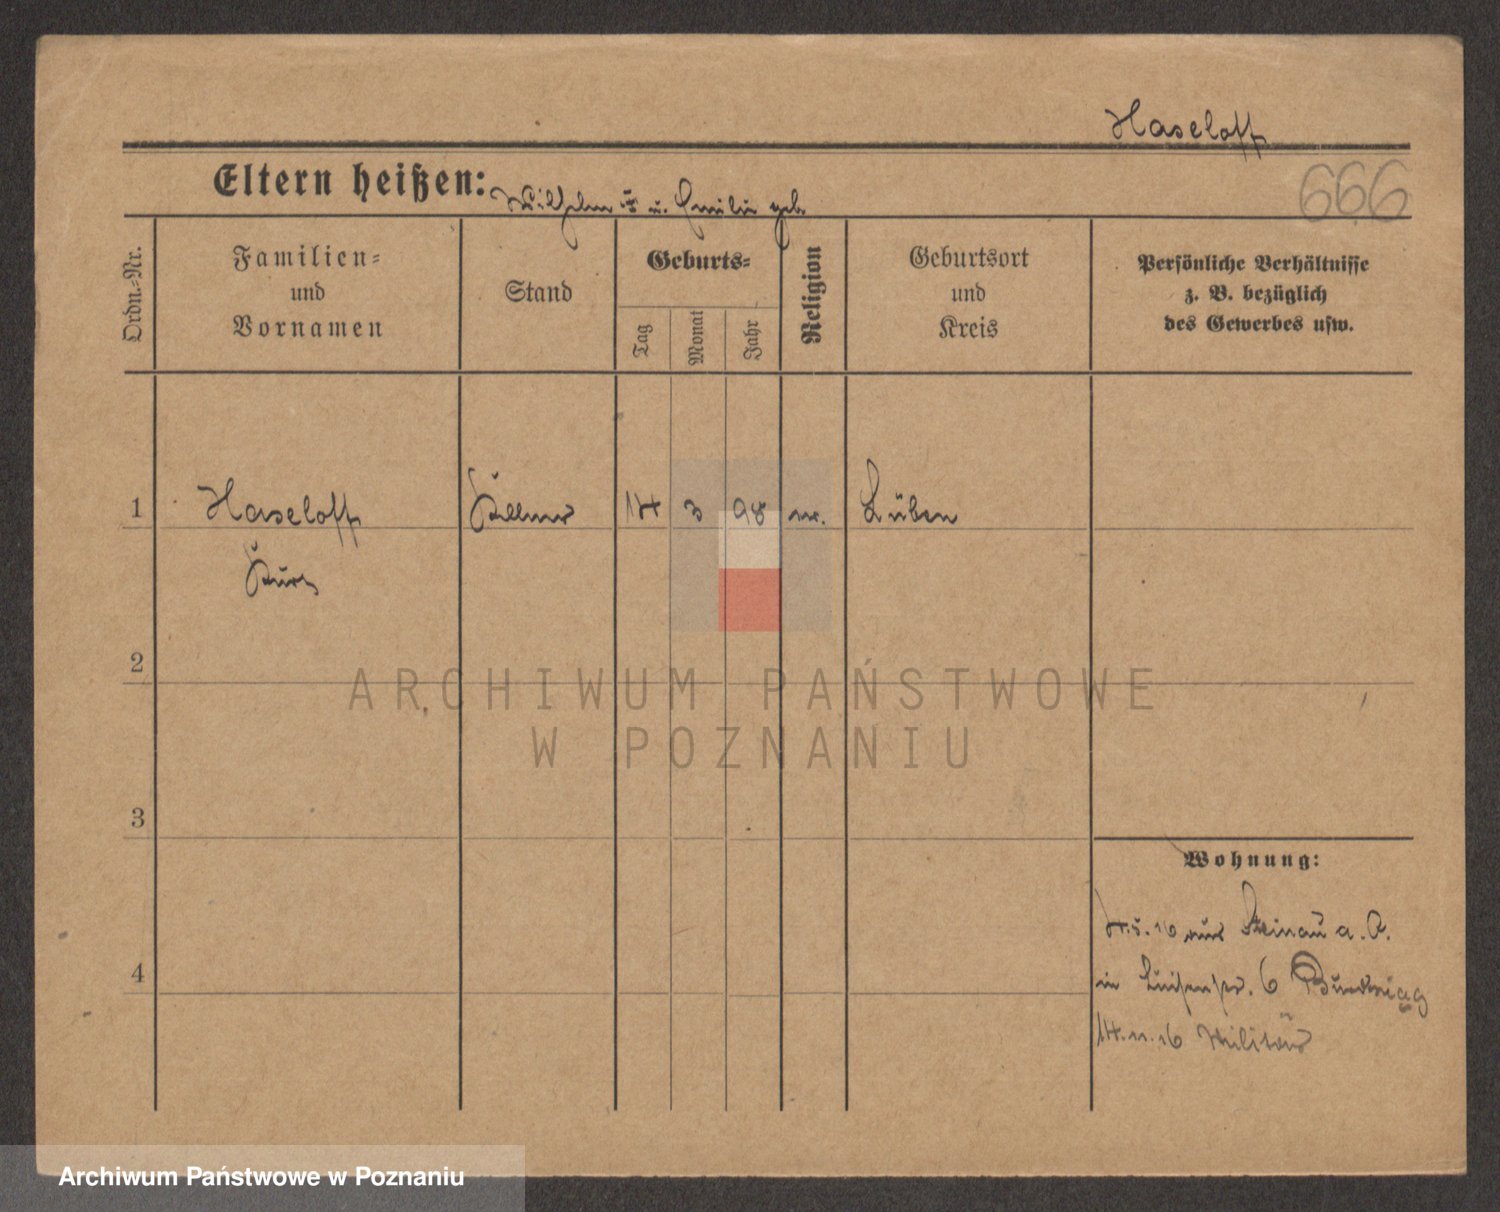 Haseloff
Eltern heißen: Wilhelm u. Emilie geb.
666
Ordn.-Nr.
Familien-
und
Vornamen
Stand
Geburts-
Tag
Monat
Jahr
Religion
Geburtsort
und
Kreis
Persönliche Verhältnisse
z. B. bezüglich
des Gewerbes usw.
1 Haseloff Kellner 14 3 98 Lüben
Kurt
2
ARCHIWUM PAŃSTWOWE
W POZNANIU
3
Wohnung:
16 aus Steinau a. O.
4
in Luisenstr. 6
14.11.16 Militär
Archiwum Państwowe w Poznaniu